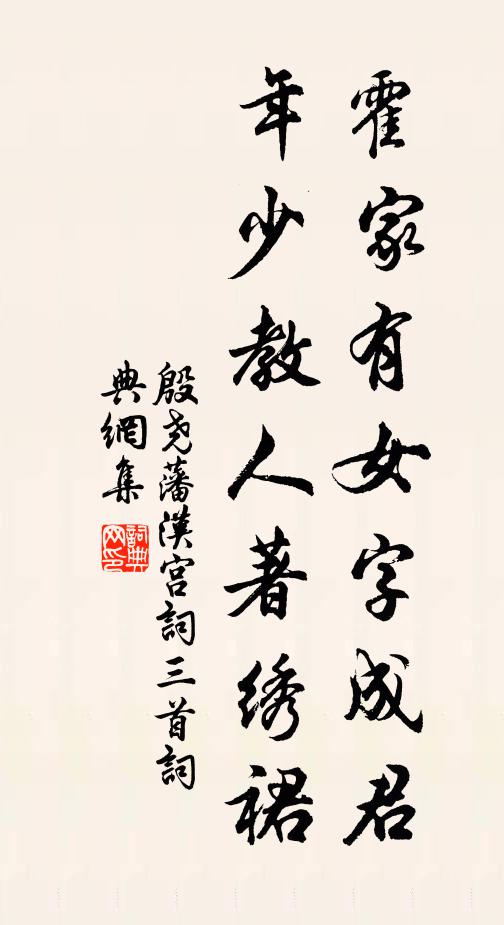 霍家有女字成君
年少教人著绣裙
殷尧藩漢宫詞三首詞
典網集
詞典网印